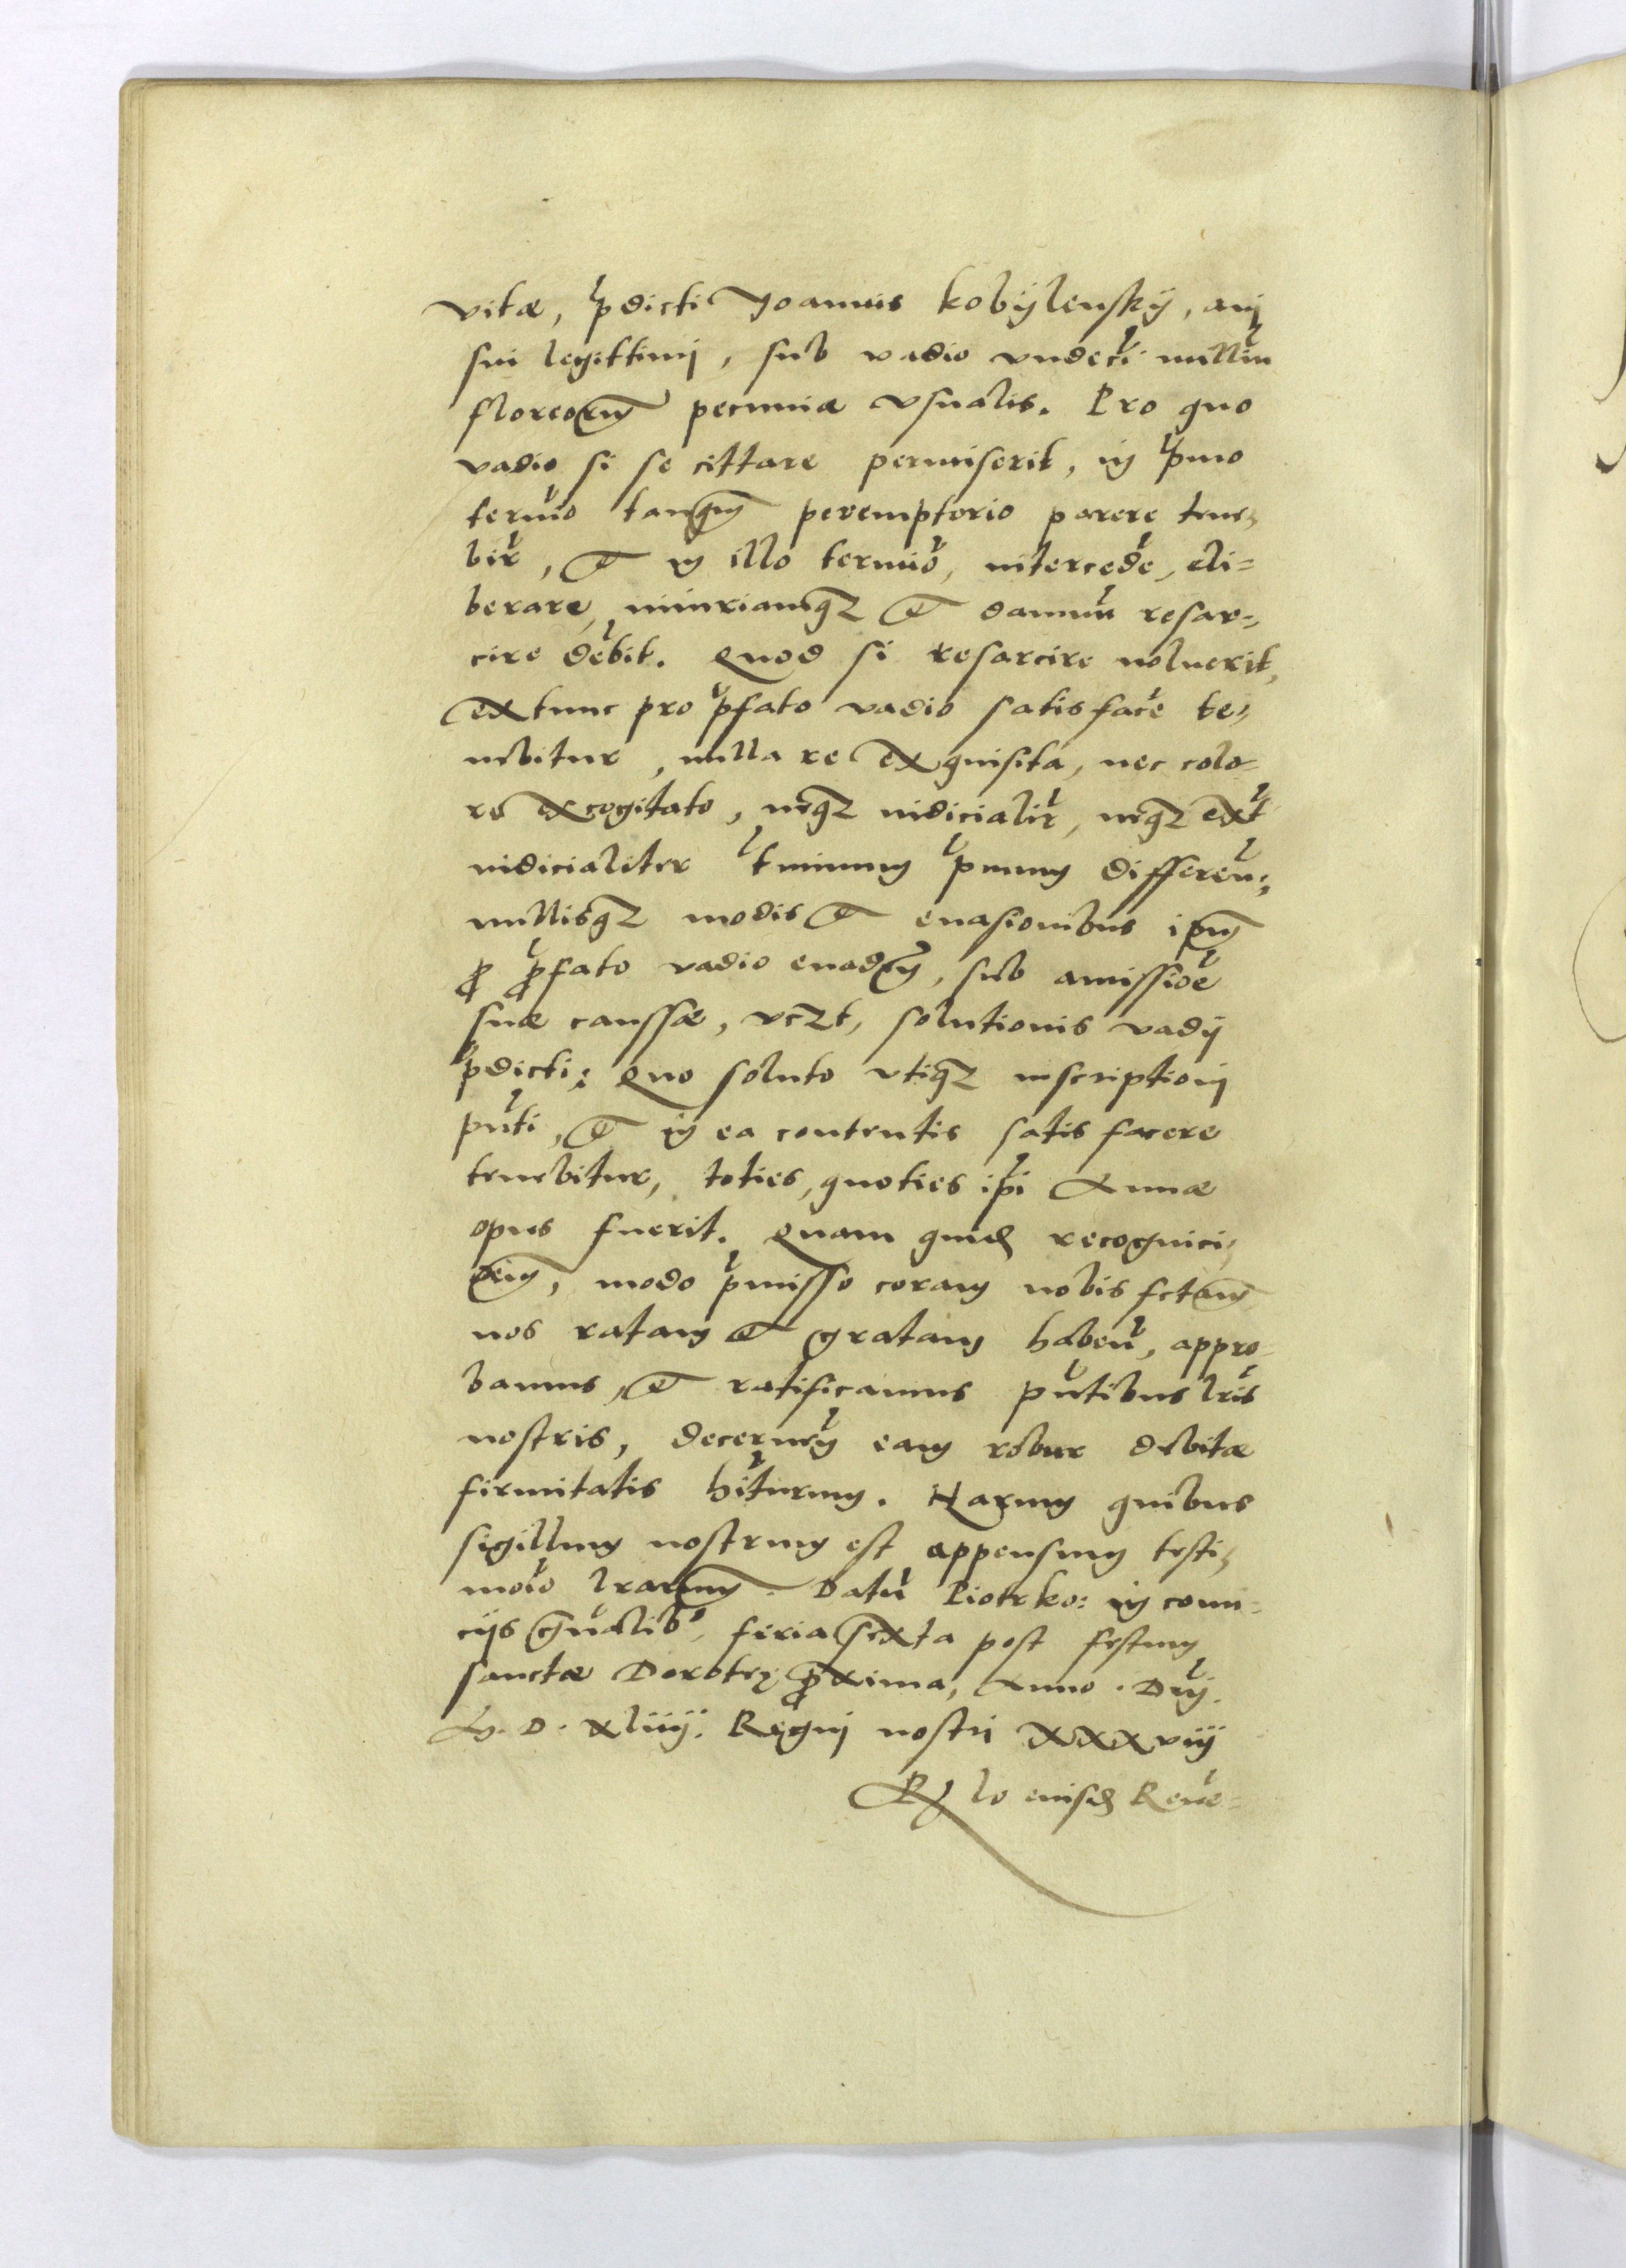 vitæ, p̃dicti Joannis kobÿlenskÿ, auj
sui legittimj, sub vadio vndeci͂ milliu͂
floreorum pecuniæ vsualis. Pro quo
vadio si se cittare permiserit, in p̃mo
termi͂o tanqm̃ peremptorio parere tene,
bit͂r, et in illo termi͂o, intercede͂, eli=
berare, iniuriamqꝫ et damnu͂ resar=
cire deb͂it. Quod si resarcire noluerit,
extunc pro p̃fato vadio satisface͂ te,
nebitur, nulla re exquisita, nec colo-
re excogitato, neqꝫ iudicialit͂r, neqꝫ ext͂
iudicialiter t͂minum p̃mum differen͂,
nullisqꝫ modis et euasionibus ip̃m
ꝓ p̃fato vadio euaden͂, sub amissio͂e
suæ caussæ, vcꝫt, solutionis vadij
p̃dicti: Quo soluto vtiqꝫ inscriptionj
pn͂ti, et in ea contentis satis facere
tenebitur, toties, quoties ip͂i Annæ
opus fuerit. Quam quid recognici,
oem͂, modo p̃misso coram nobis fctam
nos ratam et gratam haben͂, appro-
bamus, et ratificamus pn͂tibus lr͂is
nostris, decernen͂ eam robur debitæ
firmitatis hit͂uram. Harum quibus
sigillum nostrum est appensum testi,
moi͂o lrarum. Datu͂ Piotrko: in comi-
cijs gn͂alib⁹, feria sexta post festum
sanctæ Dorotheę ꝓxima, Anno. Dnj͂.
M. D. xliiij. Regni nostri xxxviij
R͂lo eiusd Reue͂-